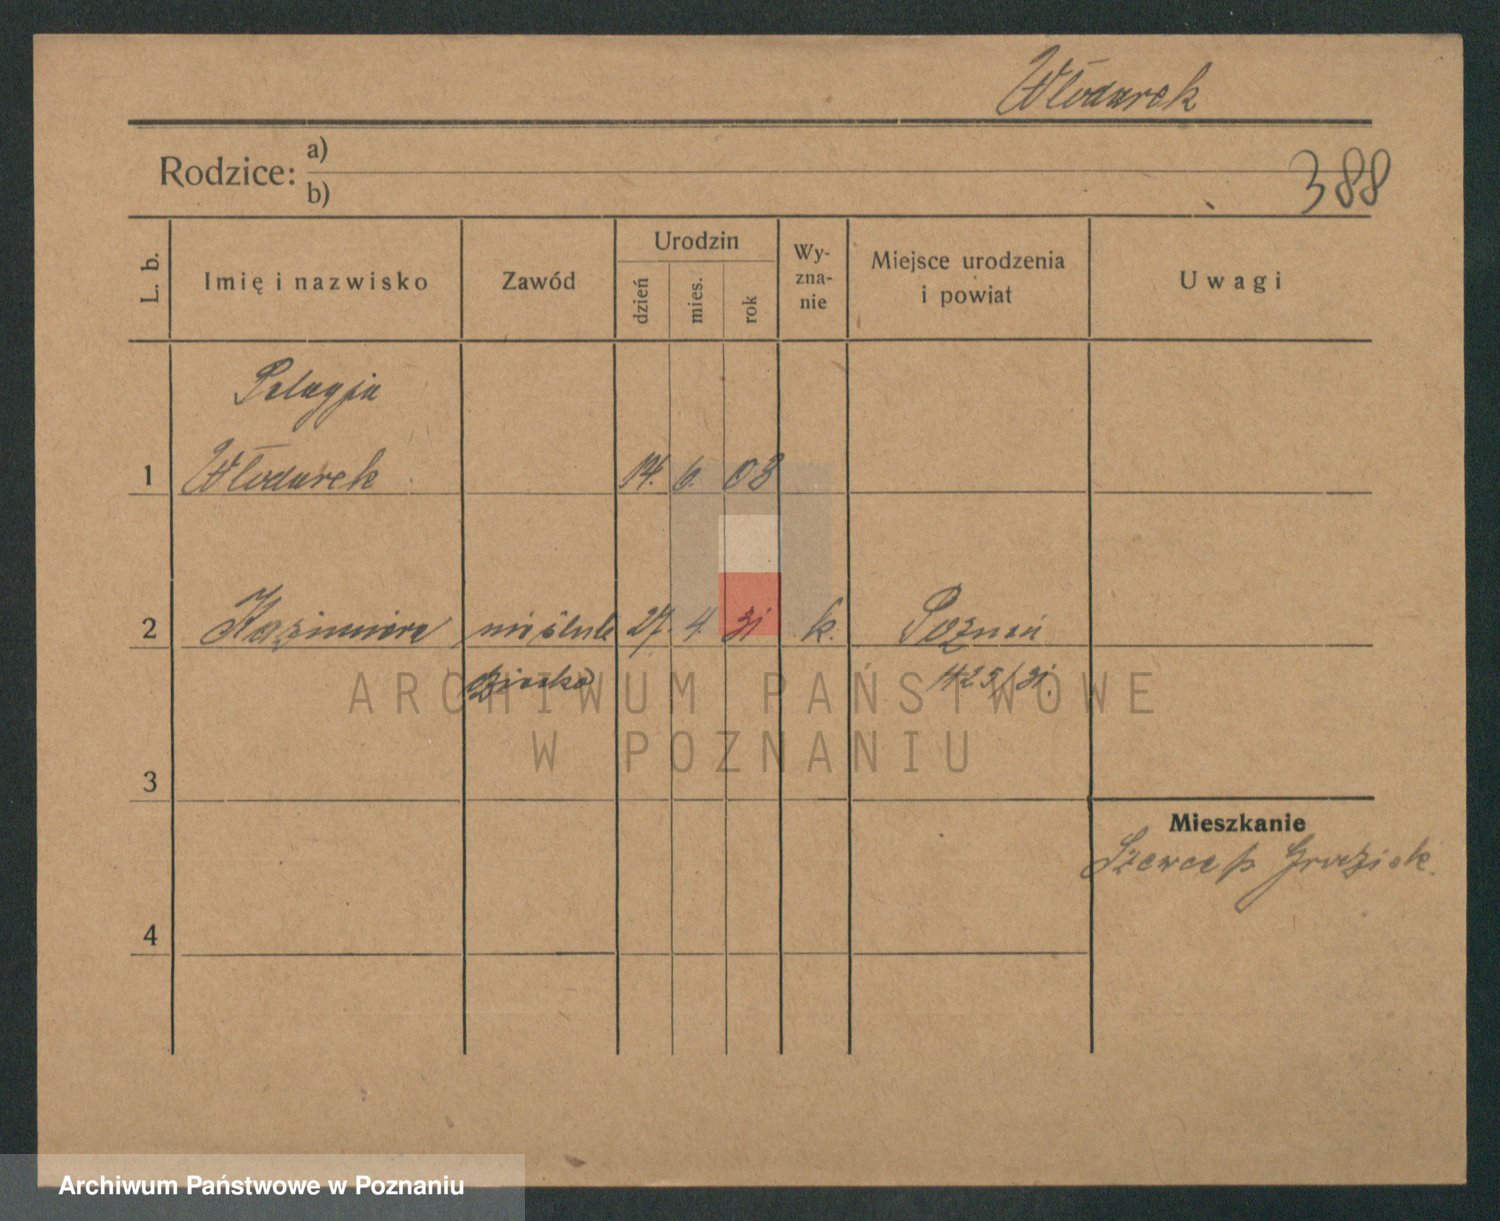 Włodarek
Rodzice: a)
b)
388
L. b.
Imię i nazwisko
Zawód
Urodzin
dzień
mies.
rok
Wy-
zna-
nie
Miejsce urodzenia
i powiat
Uwagi
Pelagja
1 Włodarek 14. 6. 03
2 Kazimiera nieślub 27. 4. 31 k. Poznań
dziecko 1425/31.
ARCHIWUM PAŃSTWOWE
W POZNANIU
3
Mieszkanie
4
Archiwum Państwowe w Poznaniu